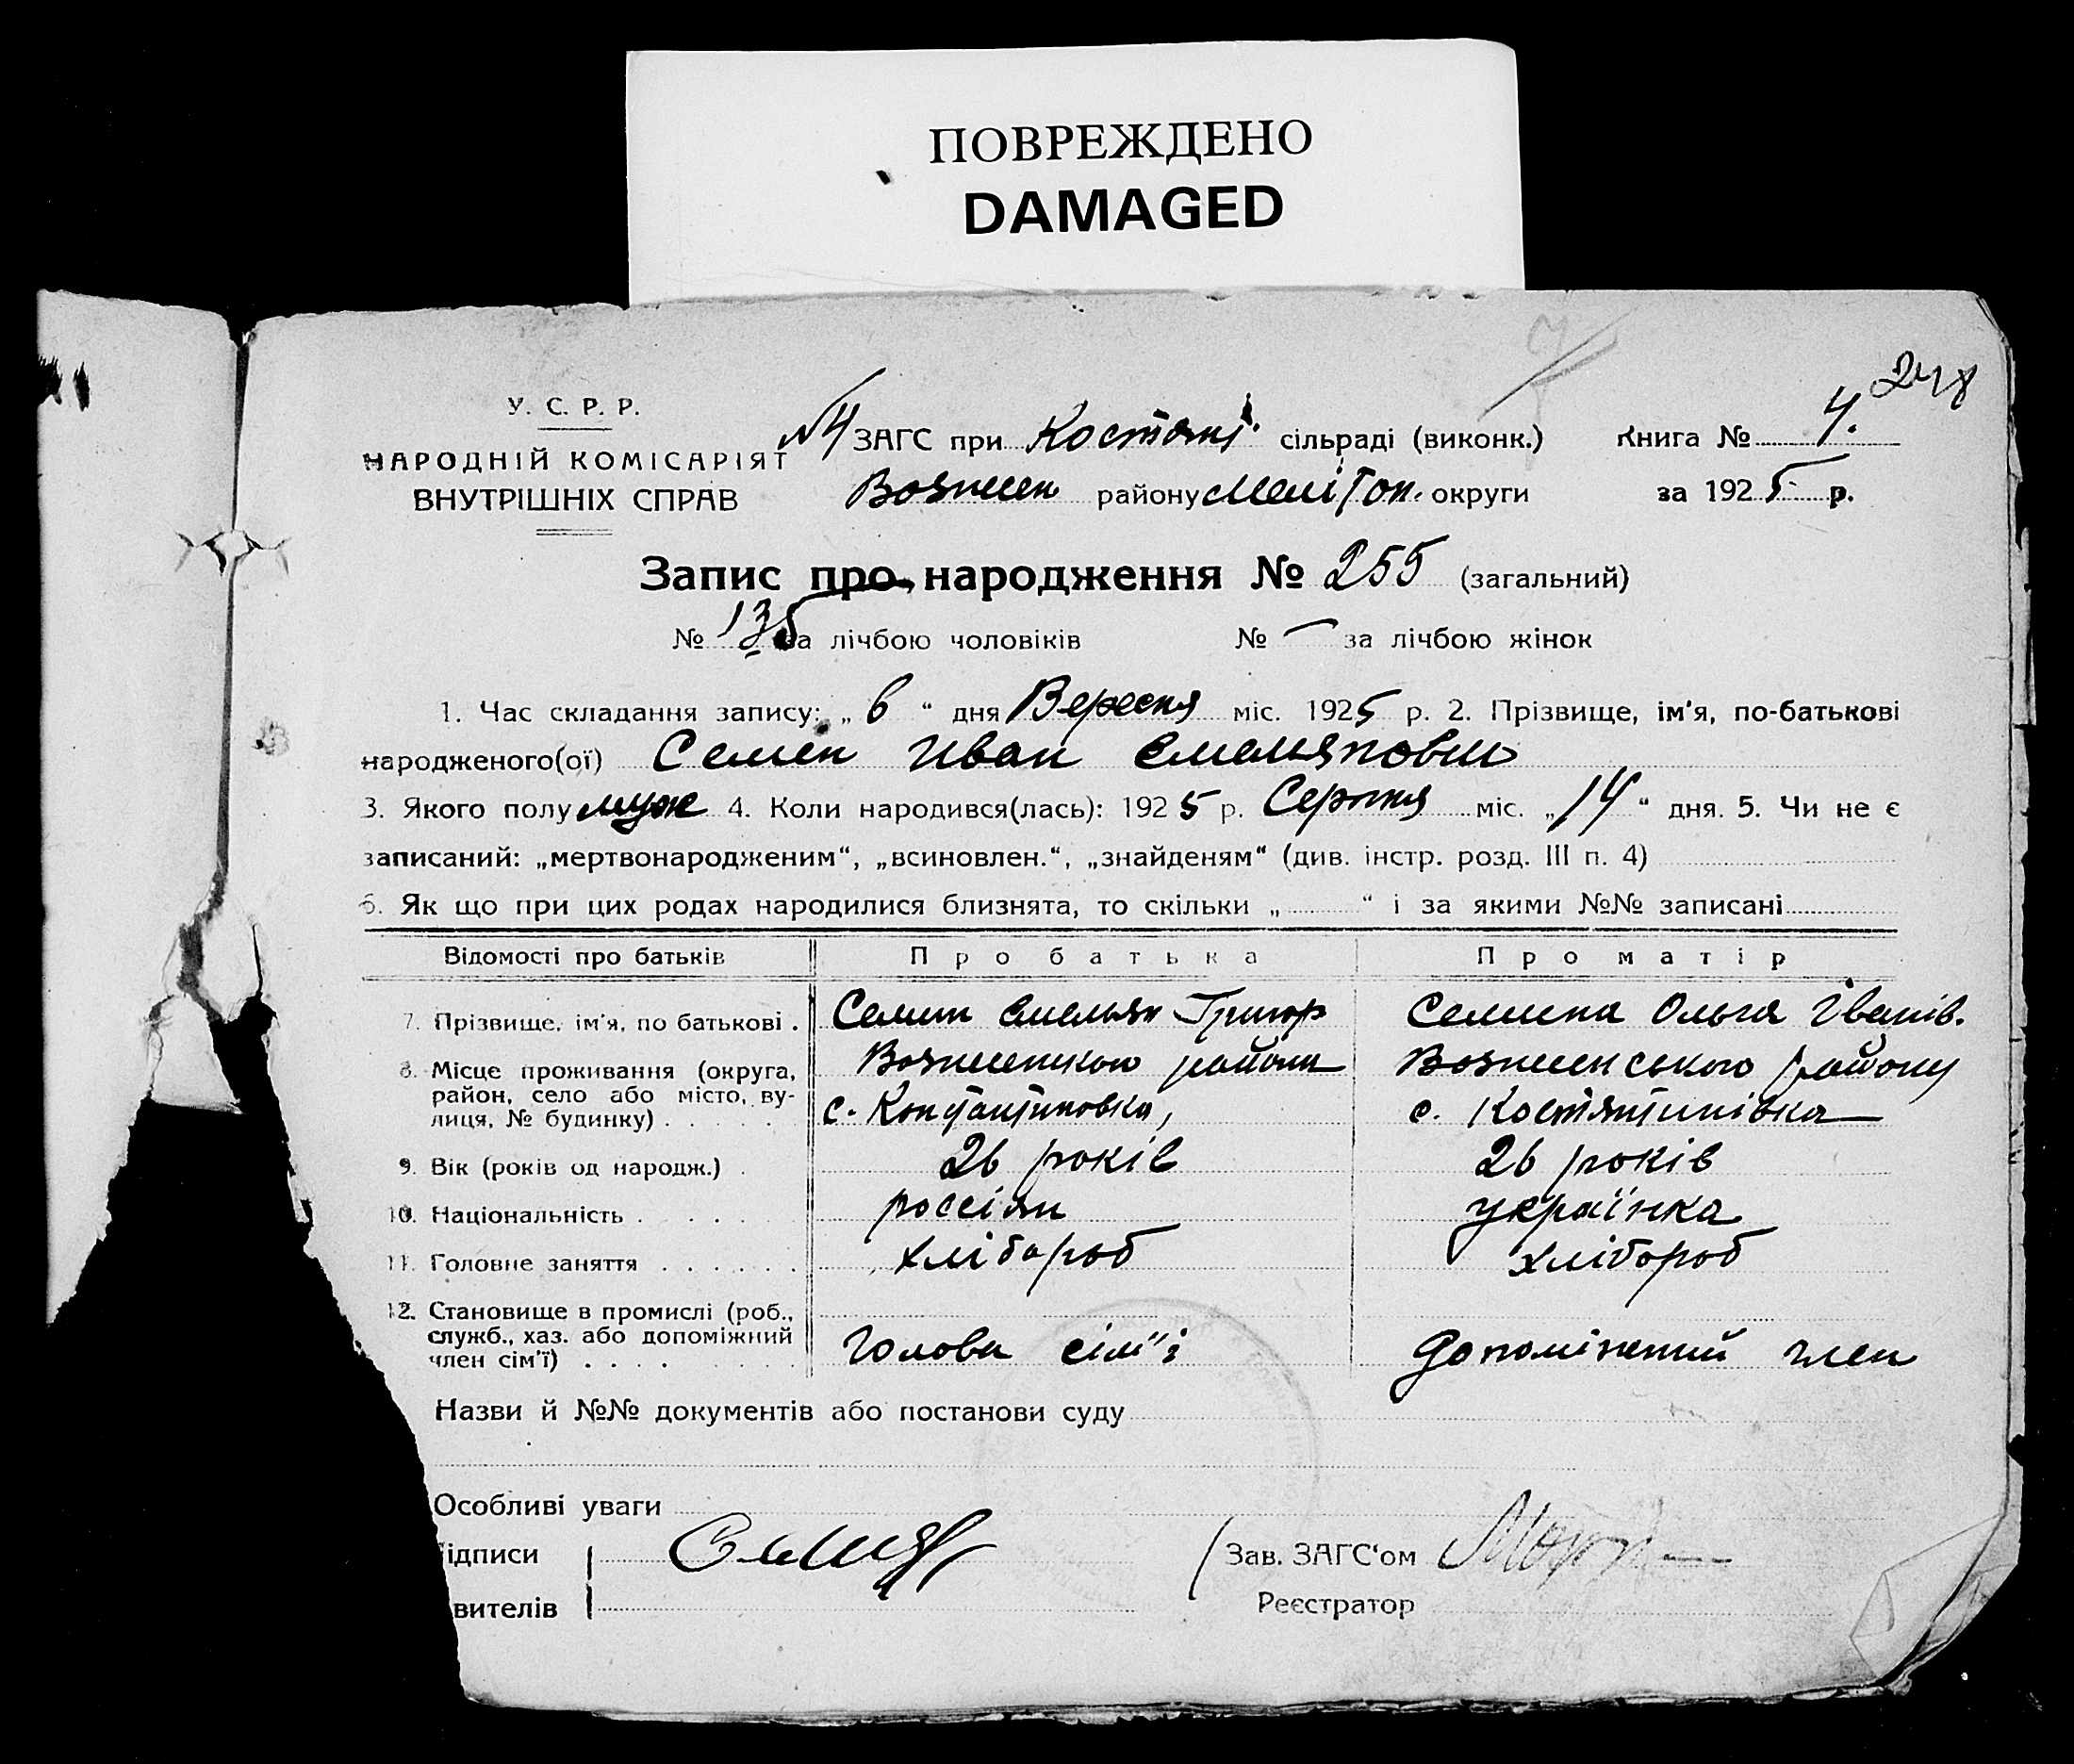 ПОВРЕЖДЕНО
DAMAGED
248
У. С. Р. Р.
НАРОДНІЙ КОМІСАРІЯТ
ВНУТРІШНІХ СПРАВ
№4 ЗАГС при Костянт. сільраді (виконк.) Книга № 4.
Вознесен району Мелітоп. округи за 1925 р.
Запис про народження № 255 (загальний)
№ 135 за лічбою чоловіків № — за лічбою жінок
1. Час складання запису: „ 6 “ дня Вересня міс. 1925 р. 2. Прізвище, ім'я, по-батькові
народженого(ої) Семен Иван Емельянович
3. Якого полу муж 4. Коли народився(лась): 1925 р. Серпня міс. „14“ дня. 5. Чи не є
записаний: „мертвонародженим“, „всиновлен.“, „знайденям“ (див. інстр. розд. III п. 4)
6. Як що при цих родах народилися близнята, то скільки „ “ і за якими №№ записані
Відомості про батьків Про батька Про матір
7. Прізвище, ім'я, по батькові . Емельян Григор Ольга Іванів.
8. Місце проживання (округа, район, село або місто, вулиця, № будинку) . . . . . району Вознесенського району
с. Константиновка, с. Костянтинівка
9. Вік (років од народж.) . 26 років 26 років
10. Національність . . . . россіян українка
11. Головне заняття . . . . . . хлібороб хлібороб
12. Становище в промислі (роб., служб., хаз. або допоміжний член сім'ї) . . . . Голова сім"ї Допоміжний член
Назви й №№ документів або постанови суду
Особливі уваги
ідписи Зав. ЗАГС'ом
вителів Реєстратор